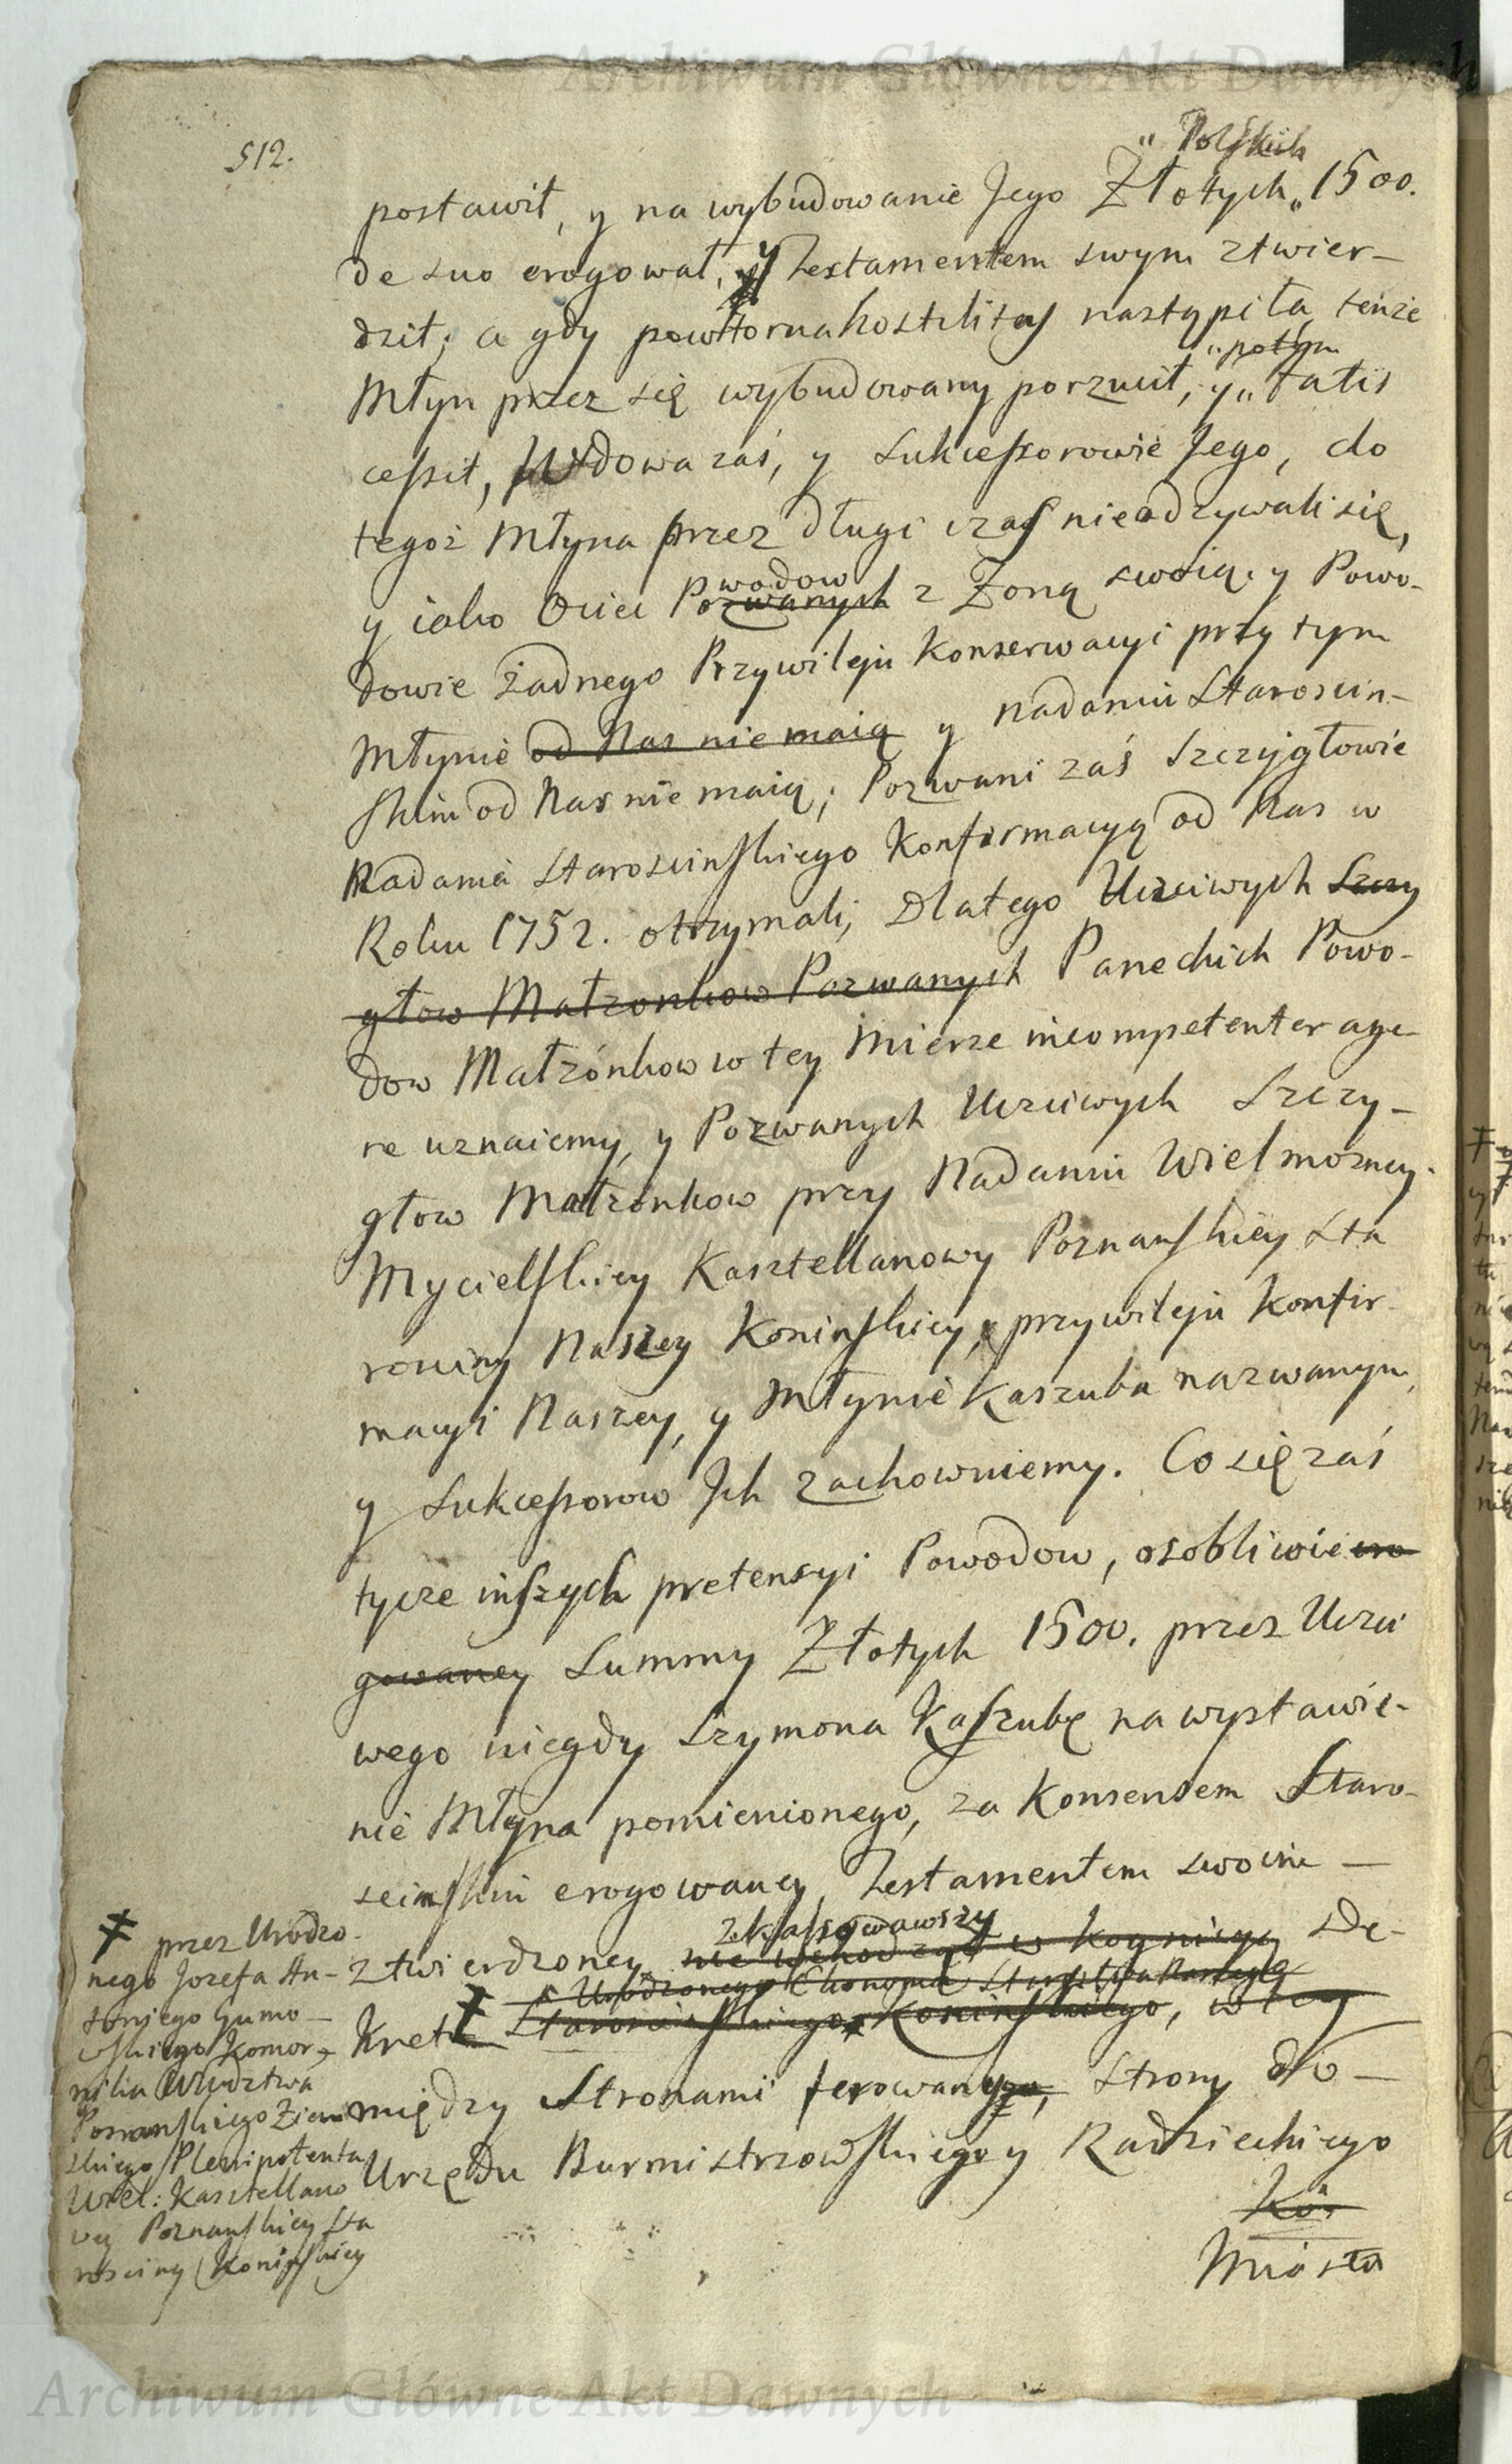 Archiwum Główne Akt Dawnych
512.
" Polskich
postawił, y na wybudowanie Jego Złotych „ 1500.
de suo erogował, y Testamentem swym ztwier-
dził; a gdy powtorna hostilitas nastąpiła, tenże
"potym
Młyn przez się wybudowany porzucił, y „ fatis
cessit, Wdowa zaś, y Sukcessorowie Jego, do
tegoż Młyna przez długi czas nieodzywali się,
wodow
y iako Ociec Pozwanych z Żoną swoią, y Powo-
dowie żadnego Przywileju Konserwacyi przy tym
Młynie od Nas nie maią y nadaniu Starościn-
skim od Nas nie maią; Pozwani zaś Szczygłowie
Nadania Starościnskiego Konfirmacyą od Nas w
Roku 1752. otrzymali; Dlatego Uczciwych Szczy
głow Małżonkow Pozwanych Paneckich Powo-
dow Małżonkow w tey mierze incompetenter age-
re uznaiemy, y Pozwanych Uczciwych Szczy-
głow Małżonkow przy Nadaniu Wielmożney
Mycielskiey Kasztellanowy Poznanskiey Sta
rosciny Naszey Koninskiey, przywileju Konfir-
macyi Naszey, y Młynie Kaszuba nazwanym,
y Sukcessorow Jch zachowuiemy. Co się zaś
tycze inszych pretensyi Powodow, osobliwie ero
gowaney Summy Złotych 1500. przez Uczci
wego niegdy Szymona Kaszubę na wystawie-
nie Młyna pomienionego, za Konsensem Staro-
scinskim erogowaney, Testamentem swoim
ztwierdzoney, nie wchodząc w Kognicyę De-
Zkassowawszy
Urodzonego Ekonoma Starostwa Naszego
kret Starościnskiego Koninskiego, w tey
między Stronami ferowany, Strony do
Urzędu Burmistrzowskiego y Radzieckiego
Ko
Miasta
przez Urodzo-
nego Jozefa An-
toniego Gumo-
wskiego Komor-
nika Wdztwa
Poznanskiego Ziem
skiego Plenipotenta
Wiel: Kasztellano
wey Poznanskiey Sta
rosciny Koninskiey
Archiwum Główne Akt Dawnych